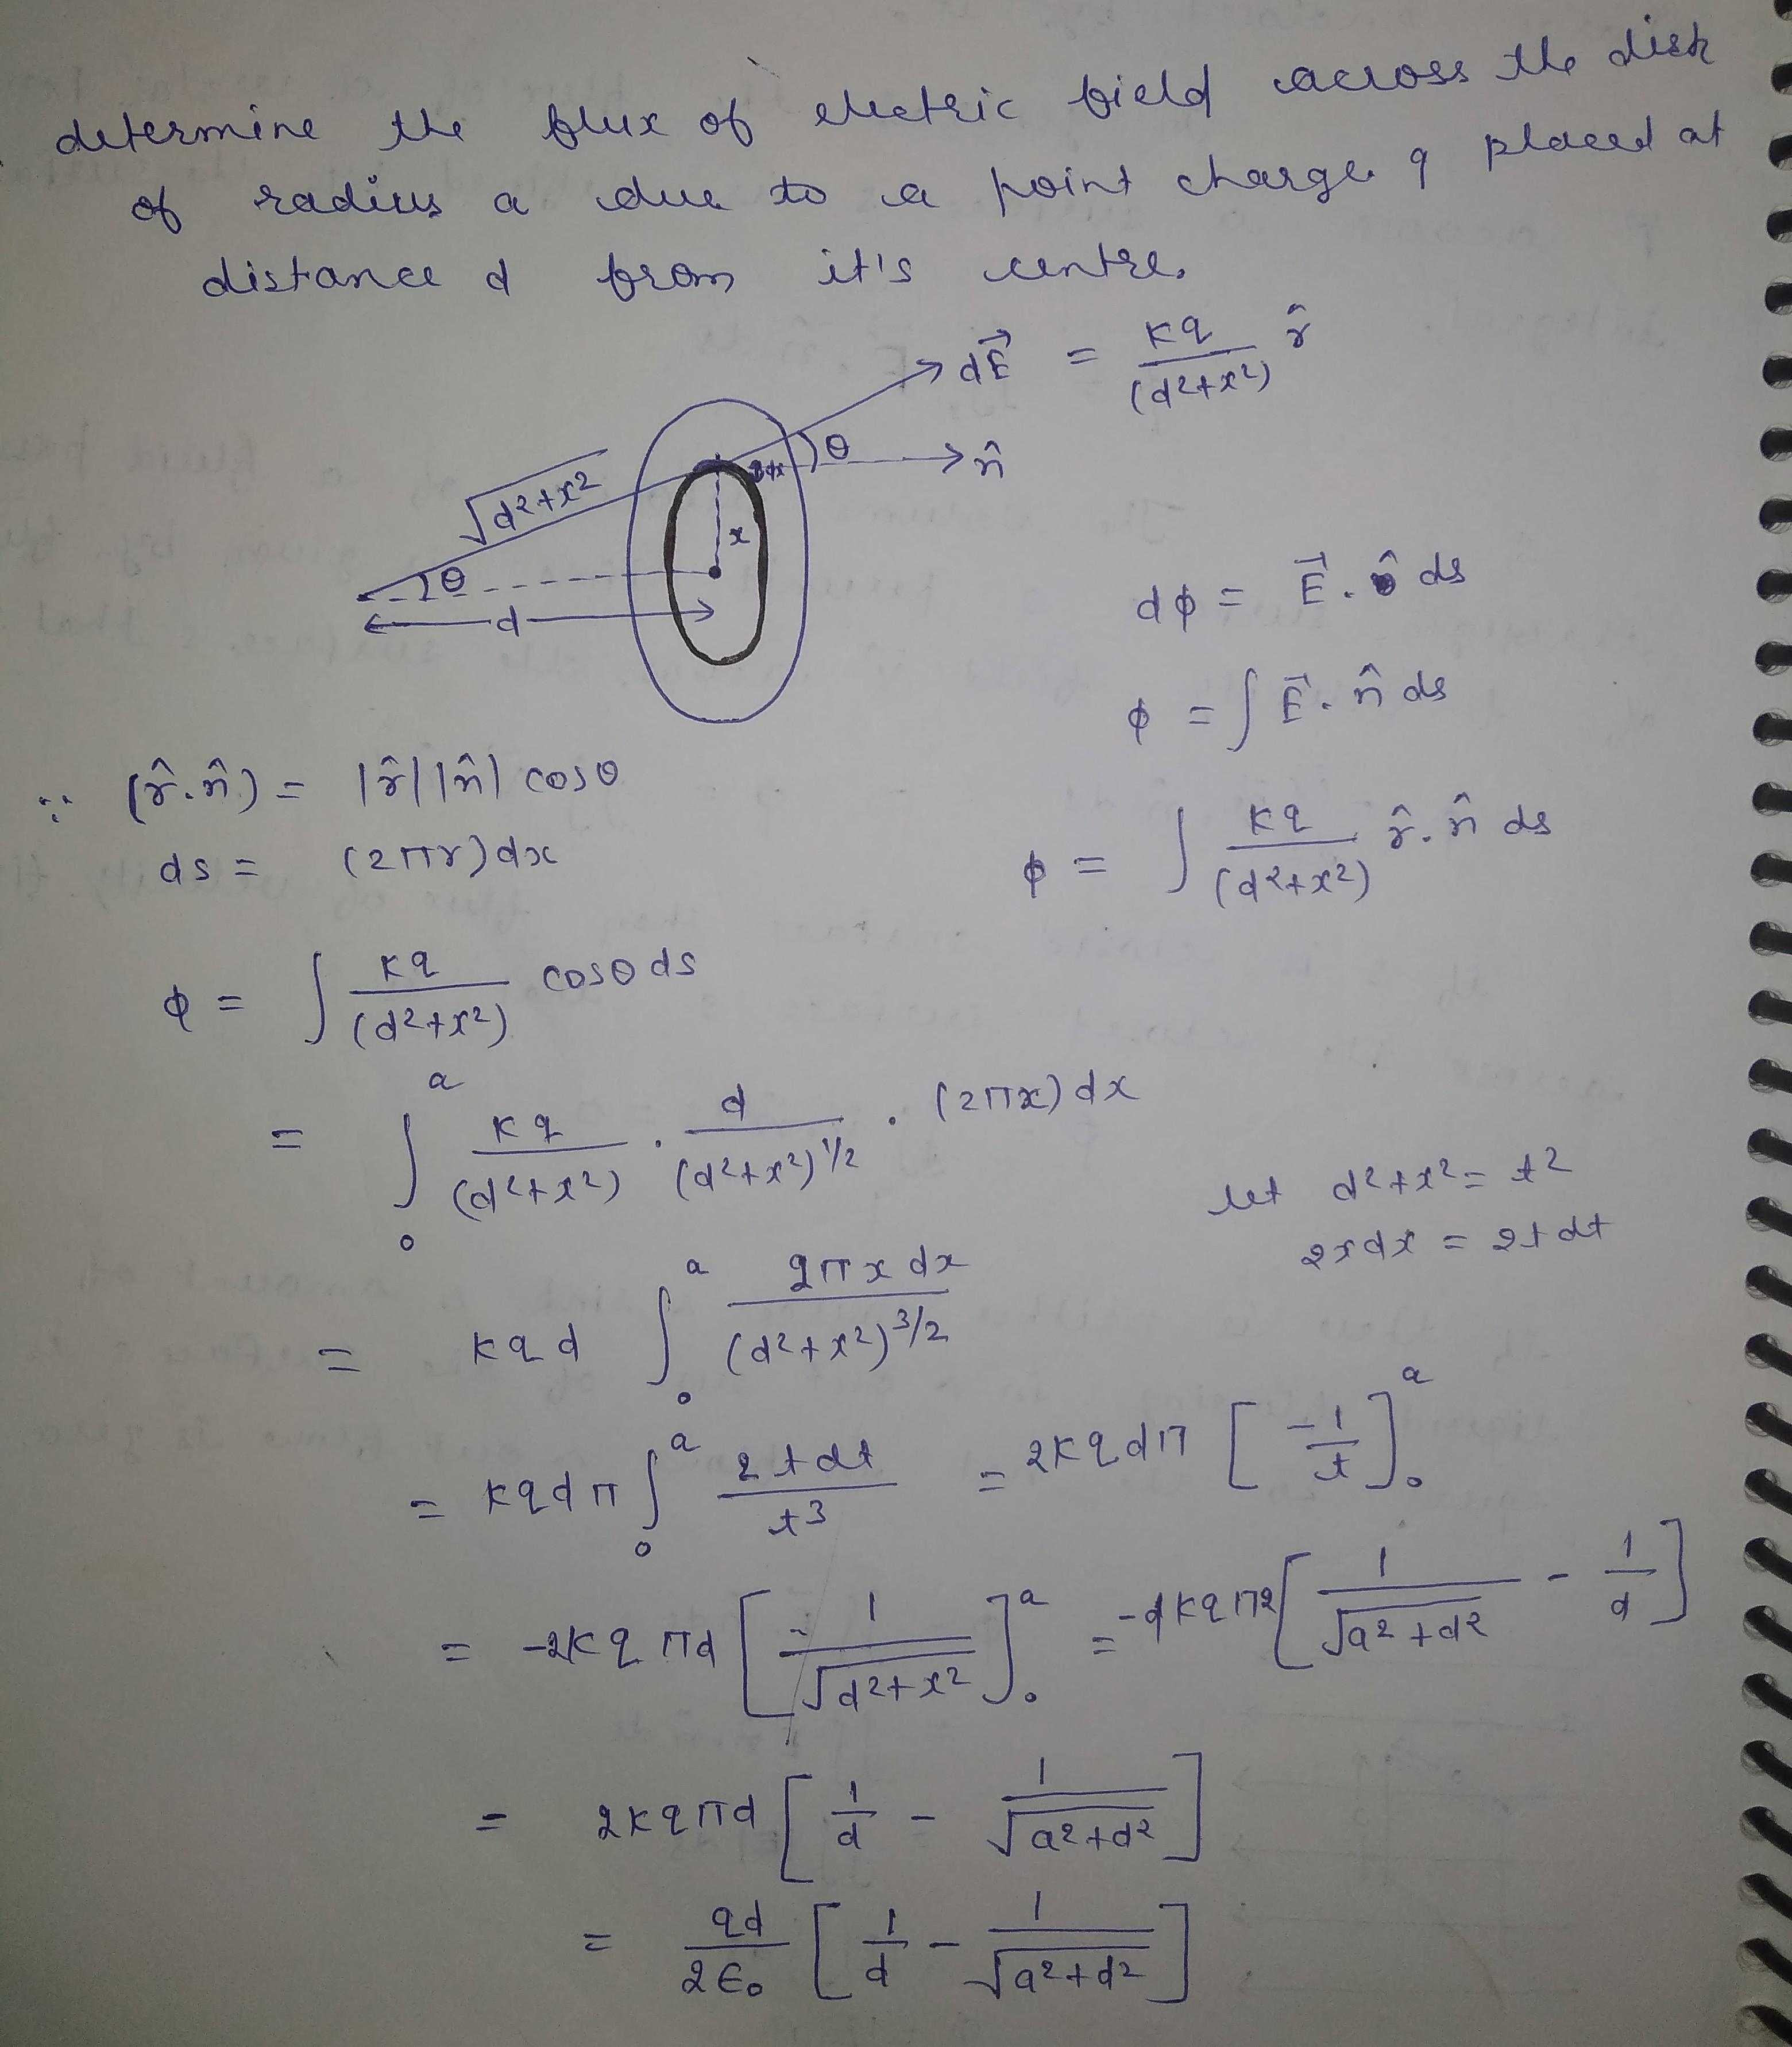 determine the flux of electric field across the disk
of radius a due to a point charge q placed at
distance d from it's centre.
dE⃗ = Kq/(d²+x²) r̂
θ
n̂
√d²+x²
x
θ
d
dφ = E⃗. ds
φ = ∫ E⃗. n̂ ds
∵ (r̂.n̂) = |r̂||n̂| cosθ
ds = (2πr)dx
φ = ∫ Kq/(d²+x²) r̂. n̂ ds
φ = ∫ Kq/(d²+x²) cosθ ds
= ∫₀ᵃ Kq/(d²+x²) . d/(d²+x²)^1/2 . (2πx)dx
let d²+x² = t²
2xdx = 2tdt
= Kqd ∫₀ᵃ 2πx dx/(d²+x²)^3/2
= Kqdπ ∫₀ᵃ 2tdt/t³ = 2Kqdπ [-1/t]₀ᵃ
= -2Kqπd [1/√d²+x²]₀ᵃ = -dKqπ2 [1/√a²+d² - 1/d]
= 2Kqπd [1/d - 1/√a²+d²]
= qd/2ϵ₀ [1/d - 1/√a²+d²]